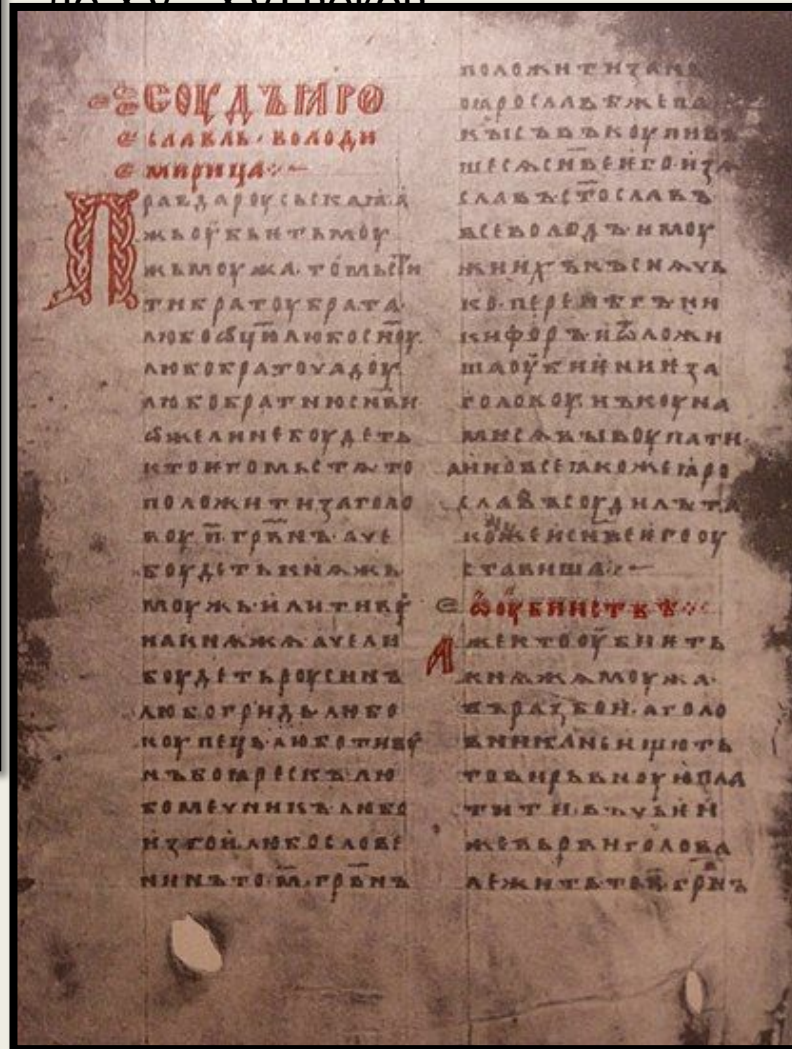 СОУДЪ ІАРО
СЛАВЛЬ · ВОЛОДИ
МИРИЦА
ПРАВДА РОУСЬСКАІА · А
ЖЬ ОУБЬЕТЬ МОУ
ЖЬ МОУЖА · ТО МЬСТИ
ТИ БРАТОУ БРАТА ·
ЛЮБО ѾЦЮ ЛЮБО СНОУ
ЛЮБО БРАТОУЧАДОУ
ЛЮБО БРАТНЮ СНВИ
ѾЖЕ ЛИ НЕ БОУДЕТЬ
КТО ІЕГО МЬСТѦ ТО
ПОЛОЖИТИ ЗА ГОЛО
ВОУ · П · ГРВНЪ · АЧЕ
БОУДЕТЬ КНѦЖЬ
МОУЖЬ ИЛИ ТИВОУ
НА КНѦЖѦ · АЧЕ ЛИ
БОУДЕТЬ РОУСИНЪ
ЛЮБО ГРИДЬ ЛЮБО
КОУПЕЦЬ ЛЮБО ТИВОУ
НЪ БОІАРЕСКЪ ЛЮ
БО МЕЧНИКЪ ЛЮБО
ИЗГОИ ЛЮБО СЛОВЕ
НИНЪ ТО · М · ГРВНЪ
ПОЛОЖИТИ ЗА НЬ
ПО ІАРОСЛАВѢ ЖЕ ПА
КЫ СЪВЪКОУПИВЪ
ШЕСѦ СНВЕ ІЕГО · ИЗѦ
СЛАВЪ · СТОСЛАВЪ ·
ВСЕВОЛОДЪ · И МОУ
ЖИ ИХЪ КЪСНѦЧЬ
КО · ПЕРЕНѢГЪ · НИ
КИФОРЪ · И ѾЛОЖИ
ША ОУБИІЕНИІЕ ЗА
ГОЛОВОУ · НЪ КОУНА
МИ СѦ ВЫКОУПАТИ ·
А ИНО ВСЕ ІАКОЖЕ ІАРО
СЛАВЪ СОУДИЛЪ ТА
КОЖЕ И СНВЕ ІЕГО ОУ
СТАВИША
Ѿ ОУБИИСТВѢ
АЖЕ КТО ОУБИІЕТЬ
КНѦЖѦ МОУЖА ·
ВЪ РАЗБОИ · А ГОЛО
ВНИКА НЕ ИЩЮТЬ
ТО ВИРЬВНОУЮ ПЛА
ТИТИ · ВЪ ЧЬІЕИ
ЖЕ ВЬРВИ ГОЛОВА
ЛЕЖИТЬ ТО · П · ГРВНЪ